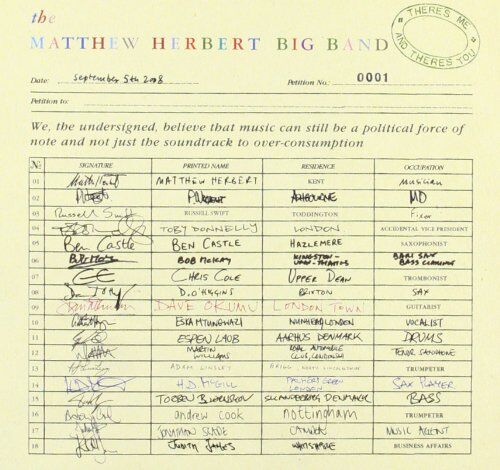 the
MATTHEW HERBERT BIG BAND
THERE'S ME AND THERE'S YOU
Date: September 5th 2008 Petition No.: 0001
Petition to:
We, the undersigned, believe that music can still be a political force of
note and not just the soundtrack to over-consumption
No SIGNATURE PRINTED NAME RESIDENCE OCCUPATION
01 MATTHEW HERBERT KENT Musician
02 P.Wright ASHBOURNE MD
03 Russell Swift RUSSELL SWIFT TODDINGTON Fixer
04 TOBY DONNELLY LONDON ACCIDENTAL VICE PRESIDENT
05 Ben Castle BEN CASTLE HAZLEMERE SAXOPHONIST
06 BOB McKAY KINGSTON-UPON-THAMES BARI SAX BASS CLARINET
07 CHRIS COLE UPPER DEAN TROMBONIST
08 D. O'HIGGINS BRIXTON SAX
09 DAVE OKUMU LONDON TOWN GUITARIST
10 ESKA MTUNGWAZI NUNHEAD LONDON VOCALIST
11 ESPEN LAUB AARHUS DENMARK DRUMS
12 MARTIN WILLIAMS TENOR SAXOPHONE
13 ADAM LINSLEY BRIGG, NORTH LINCOLNSHIRE TRUMPETER
14 H.D. McGILL PALMERS GREEN LONDON SAX PLAYER
15 DENMARK BASS
16 andrew cook nottingham TRUMPETER
17 JONATHAN SLADE MUSIC AGENT
18 JUDITH JAMES WHITSTABLE BUSINESS AFFAIRS